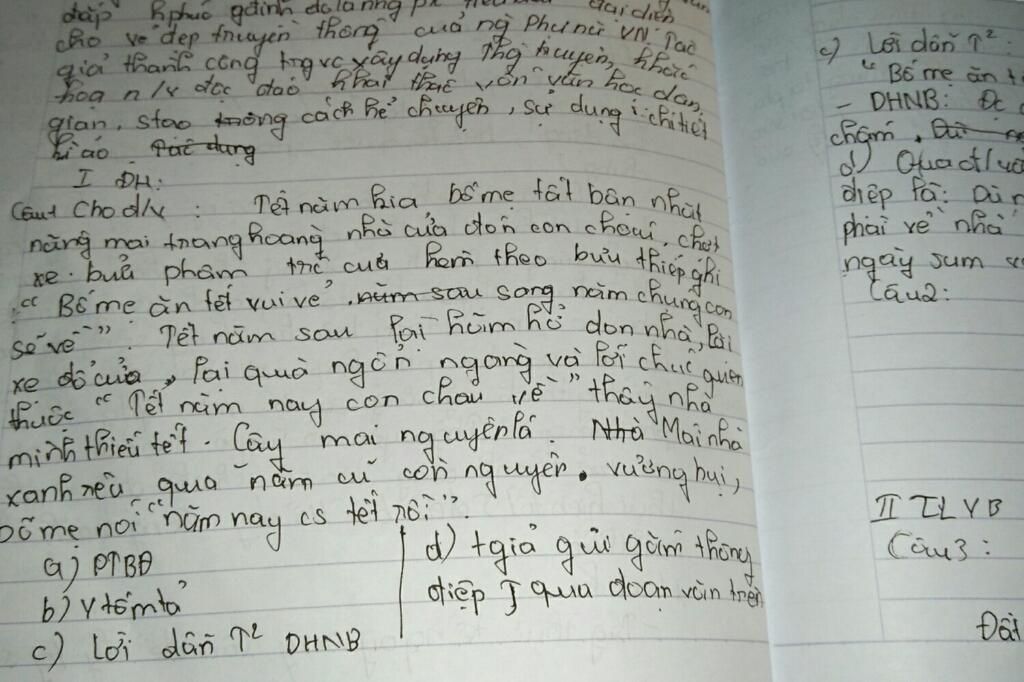 đáp hphúc gđình đó là nng
cho vẻ đẹp truyền thống của ng phụ nữ VN. Tác
giả thành công trg vc xây dựng thg huyền, khắc
họa n/v độc đáo khai thác vốn văn học dân
gian, stạo trong cách kể chuyện, sử dụng chi tiết
kì ảo. Tác dụng
I ĐH:
Câu1 Cho d/v : Tết năm kia bố mẹ tất bận nhặt
nàng mai trang hoàng nhà cửa đón con cháu, chợt
xe buả phẩm trc cửa kem theo bưu thiếp ghi
"Bố mẹ ăn tết vui vẻ. năm sau song năm chung con
sẽ về". Tết năm sau lại hăm hở dọn nhà, lại
xe đỗ cửa, lại quà ngổn ngang và lời chúc quen
thuộc "Tết năm nay con cháu về" thấy nhà
mình thiếu tết. Cây mai nguyên lá. Nhà Mái nhà
xanh rêu quà năm cũ còn nguyên. vương bụi,
bố mẹ nói "năm nay cs tết rồi".
a) PTBĐ
b) Y tóm tả
c) Lời dẫn T² DHNB
d) tgiả gửi gắm thông
điệp J qua đoạn văn trên
c) Lời dẫn T²:
"Bố mẹ ăn t
- DHNB: Đc
chấm,
d) Qua đ/v
điệp là: Dù
phải về nhà
ngày sum
Câu2:
II TLVB
Câu3:
Đất